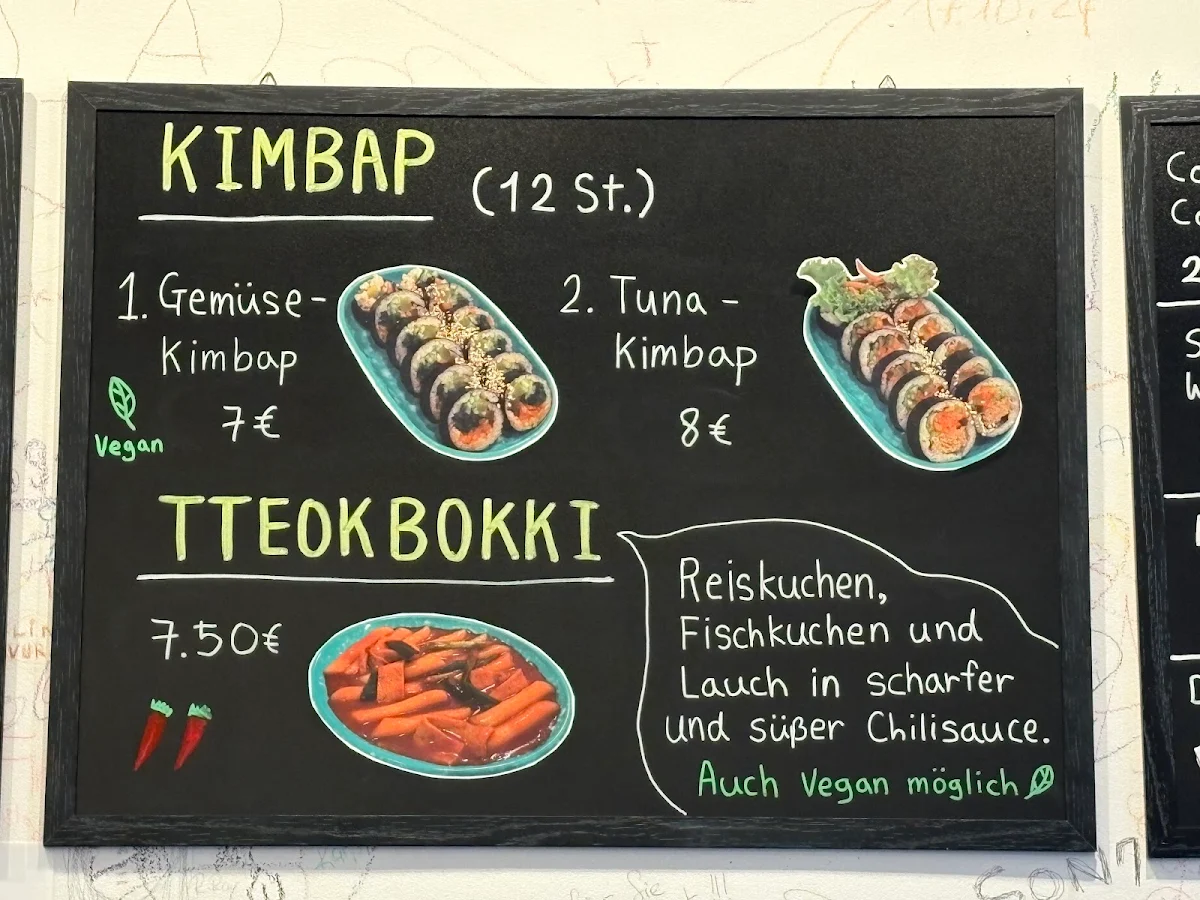 17.10.24
KIMBAP (12 St.)
1. Gemüse-
Kimbap
7€
Vegan
2. Tuna -
Kimbap
8€
TTEOKBOKKI
7.50€
Reiskuchen,
Fischkuchen und
Lauch in scharfer
und süßer Chilisauce.
Auch Vegan möglich